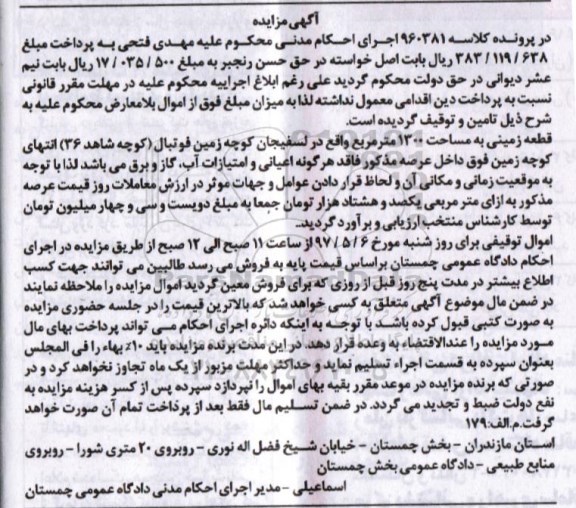 آگهی مزایده
در پرونده کلاسه ۹۶۰۳۸۱ اجرای احکام مدنی محکوم علیه مهدی فتحی به پرداخت مبلغ
۳۸۳/۱۱۹/۶۳۸ ریال بابت اصل خواسته در حق حسن رنجبر به مبلغ ۱۷/۰۳۵/۵۰۰ ریال بابت نیم
عشر دیوانی در حق دولت محکوم گردید علی رغم ابلاغ اجراییه محکوم علیه در مهلت مقرر قانونی
نسبت به پرداخت دین اقدامی معمول نداشته لذا به میزان مبلغ فوق از اموال بلامعارض محکوم علیه به
شرح ذیل تامین و توقیف گردیده است.
قطعه زمینی به مساحت ۱۳۰۰ متر مربع واقع در لسفیجان کوچه زمین فوتبال (کوچه شاهد ۳۶) انتهای
کوچه زمین فوق داخل عرصه مذکور فاقد هرگونه اعیانی و امتیازات آب، گاز و برق می باشد لذا با توجه
به موقعیت زمانی و مکانی آن و لحاظ قرار دادن عوامل و جهات موثر در ارزش معاملات روز قیمت عرصه
مذکور به ازای متر مربعی یکصد و هشتاد هزار تومان جمعا به مبلغ دویست و سی و چهار میلیون تومان
توسط کارشناس منتخب ارزیابی و برآورد گردید.
اموال توقیفی برای روز شنبه مورخ ۹۷/۵/۶ از ساعت ۱۱ صبح الی ۱۲ صبح از طریق مزایده در اجرای
احکام دادگاه عمومی چمستان براساس قیمت پایه به فروش می رسد. طالبین می توانند جهت کسب
اطلاع بیشتر در مدت پنج روز قبل از روزی که برای فروش معین گردید اموال مزایده را ملاحظه نمایند
در ضمن مال موضوع آگهی متعلق به کسی خواهد شد که بالاترین قیمت را در جلسه حضوری مزایده
به صورت کتبی قبول کرده باشد با توجه به اینکه دائره اجرای احکام می تواند پرداخت بهای مال
مورد مزایده را عندالاقتضاء به وعده قرار دهد. در این صورت برنده مزایده باید ۱۰٪ بهاء را فی المجلس
بعنوان سپرده به قسمت اجراء تسلیم نماید و حداکثر مهلت مزبور از یک ماه تجاوز نخواهد کرد و در
صورتی که برنده مزایده در موعد مقرر بقیه بهای اموال را نپردازد سپرده پس از کسر هزینه مزایده به
نفع دولت ضبط و تجدید می گردد در ضمن تسلیم مال فقط بعد از پرداخت تمام آن صورت خواهد
گرفت.م.الف:۱۷۹
استان مازندران - بخش چمستان - خیابان شیخ فضل اله نوری - روبروی ۲۰ متری شورا - روبروی
منابع طبیعی - دادگاه عمومی بخش چمستان
اسماعیلی - مدیر اجرای احکام مدنی دادگاه عمومی چمستان